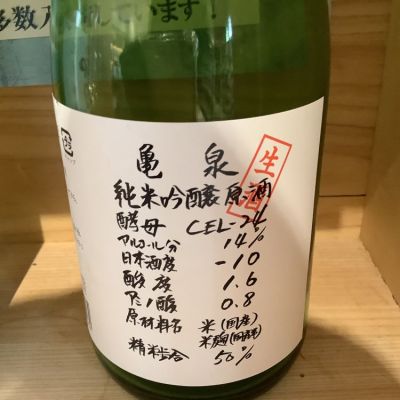 多数入荷しています!
亀泉
生酒
純米吟醸原酒
酵母 CEL-24
アルコール分 14%
日本酒度 -10
酸度 1.6
アミノ酸 0.8
原材料名 米(国産)
米麹(国産米)
精米歩合 50%